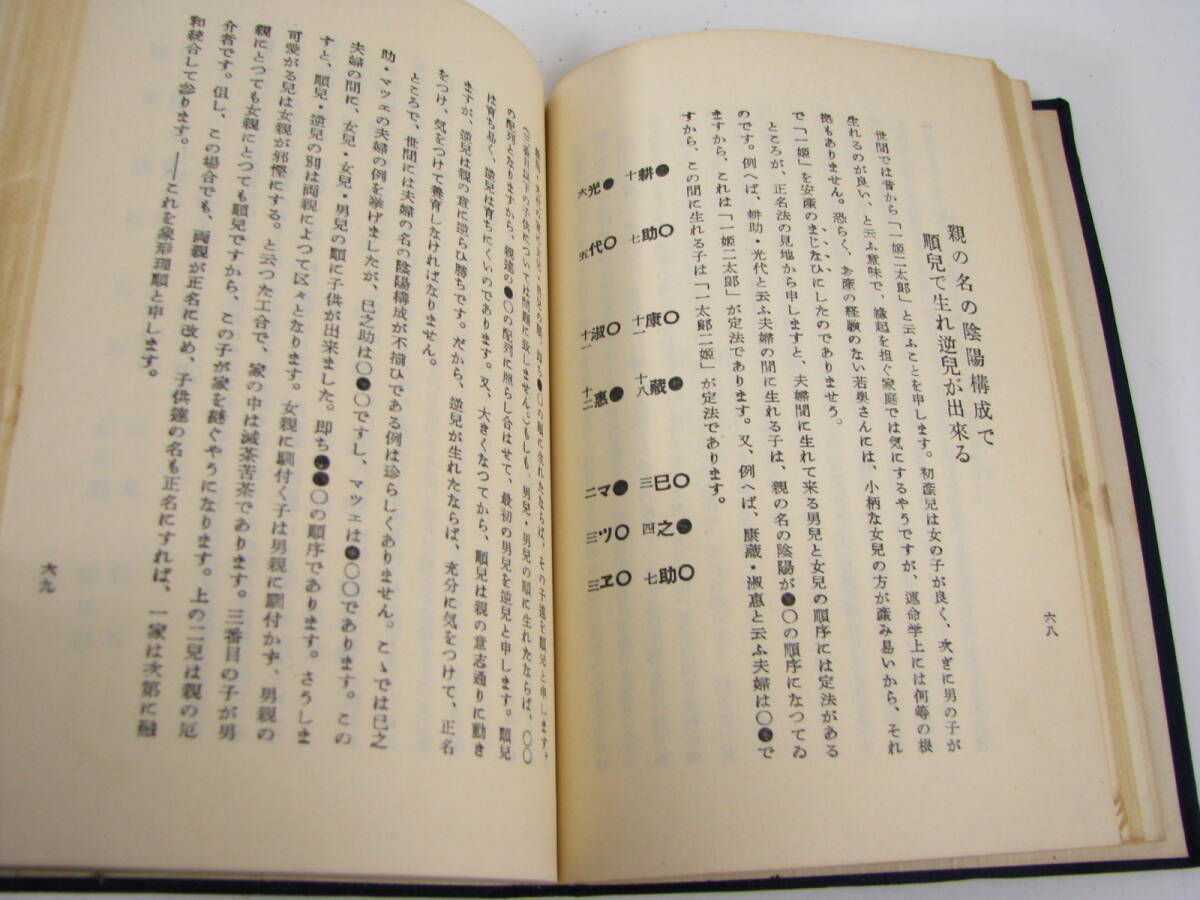 親の名の陰陽構成で
順兒で生れ逆兒が出來る
世間では昔から「一姬二太郞」と云ふことを申します。初產兒は女の子が良く、次ぎに男の子が
生れるのが良い、と云ふ意味で、緣起を担ぐ家庭では気にするやうですが、運命学上には何等の根
拠もありません。恐らく、お產の経験のない若奥さんには、小柄な女兒の方が產み易いから、それ
で「一姬」を安產のまじなひにしたのでありませう。
ところが、正名法の見地から申しますと、夫婦間に生れて来る男兒と女兒の順序には定法がある
のです。例へば、耕助・光代と云ふ夫婦の間に生れる子は、親の名の陰陽が●〇の順序になつてゐ
ますから、これは「一姬二太郞」が定法であります。又、例へば、康藏・淑惠と云ふ夫婦は〇●で
すから、この間に生れる子は「一太郞二姬」が定法であります。
十耕● 七助〇 十一康〇 十八藏● 三巳〇 四之● 七助〇
六光● 五代〇 十一淑〇 十二惠● 二マ● 三ツ〇 三ヱ〇
六八
の順に生れたならば、その子達を順兒と申します。
(三番目以下の子供については問題に致しません)もしも、男兒・男兒の順に生れたならば、〇〇
の配列となりますから、親達の●〇の配列に照らし合はせて、最初の男兒を逆兒と申します。順兒
は育ち易く、逆兒は育ちにくいのであります。又、大きくなつてから、順兒は親の意志通りに動き
ますが、逆兒は親の意に逆らひ勝ちです。だから、逆兒が生れたならば、充分に気をつけて、正名
をつけ、気をつけて養育しなければなりません。
ところで、世間には夫婦の名の陰陽構成が不揃ひである例は珍らしくありません。こゝでは巳之
助・マツェの夫婦の例を挙げましたが、巳之助は〇●〇ですし、マツェは●〇〇であります。この
夫婦の間に、女兒・女兒・男兒の順に子供が出來ました。即ち●●〇の順序であります。さうしま
すと、順兒・逆兒の別は両親によつて区々となります。女親に馴付く子は男親に馴付かず、男親の
可愛がる兒は女親が邪慳にする。と云つた工合で、家の中は滅茶苦茶であります。三番目の子が男
親にとつても女親にとつても順兒ですから、この子が家を継ぐやうになります。上の二兒は親の厄
介者です。但し、この場合でも、両親が正名に改め、子供達の名も正名にすれば、一家は次第に融
和統合して参ります。――これを象形理順と申します。
六九